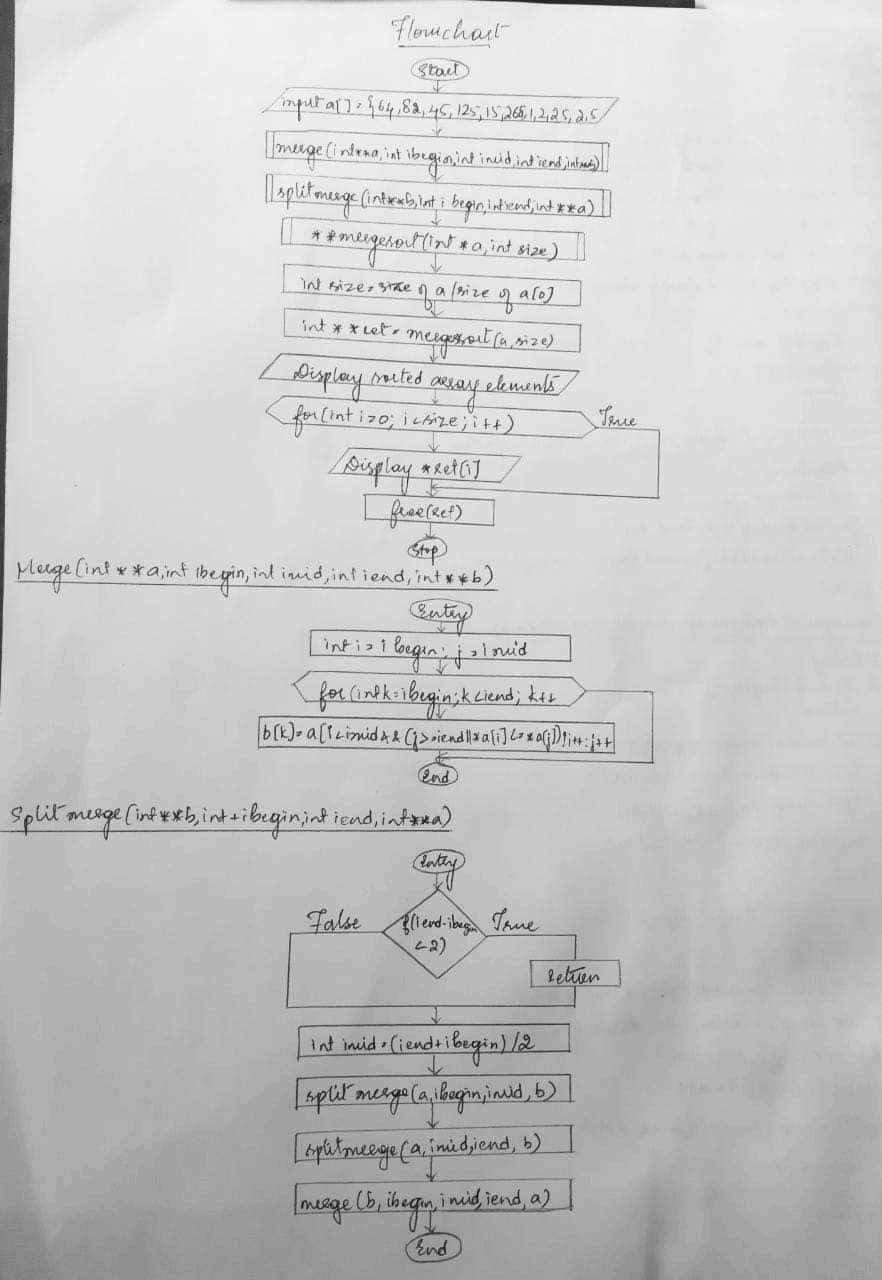 Flowchart
Start
input a[] = {64,82,45,125,15,268,1,2,25,2,5
merge(int**a,int ibegin,int imid,int iend,int**b)
splitmerge(int**b,int i begin,int iend,int**a)
**mergesort(int *a,int size)
int size = size of a / size of a[0]
int **ret = mergesort(a,size)
Display sorted array elements
for(int i=0; i<size; i++)
True
Display *ret[i]
free(ret)
Stop
Merge(int **a,int ibegin,int imid,int iend,int**b)
Entry
int i = ibegin; j = imid
for(int k=ibegin;k<iend; k++
b[k]=a[i<imid&&(j>=iend||*a[i]<=*a[j])?i++:j++
End
Split merge(int**b,int+ibegin,int iend,int**a)
Entry
False
if(iend-ibegin
True
<2)
return
int imid=(iend+ibegin)/2
splitmerge(a,ibegin,imid,b)
splitmerge(a,imid,iend,b)
merge(b,ibegin,imid,iend,a)
End